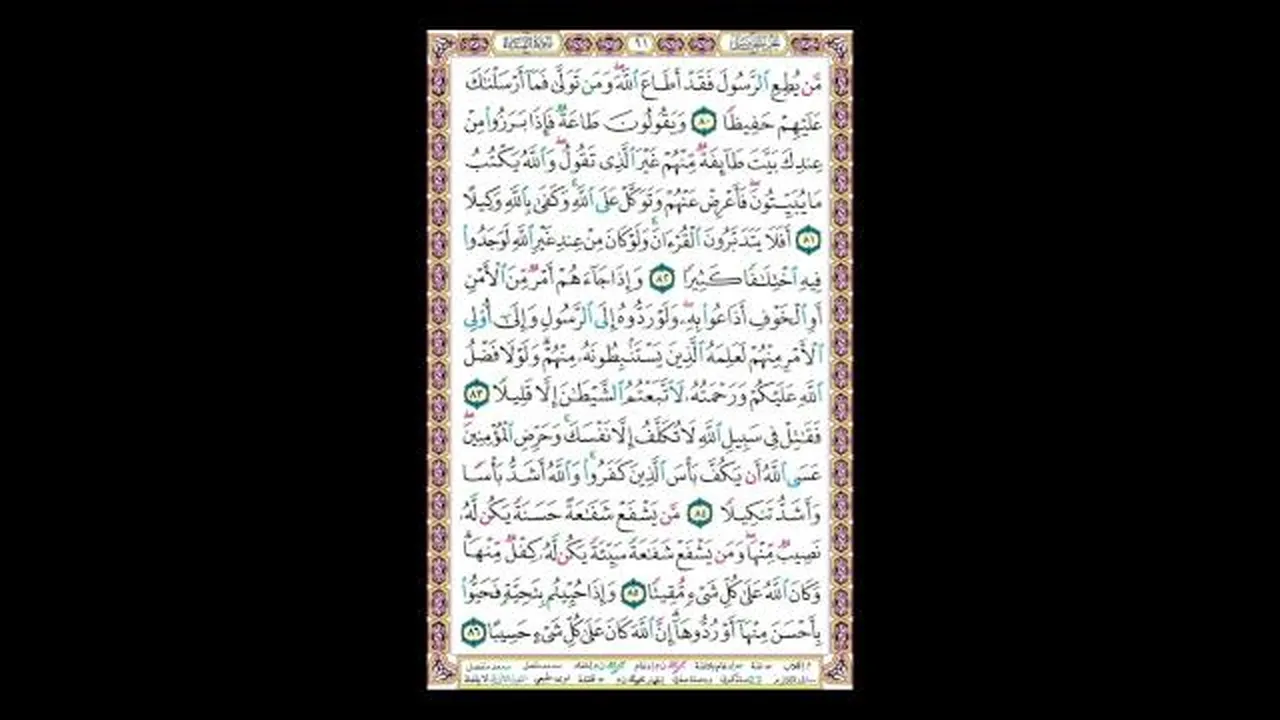 سورة النساء ٩١
مَّن يُطِعِ ٱلرَّسُولَ فَقَدْ أَطَاعَ ٱللَّهَۖ وَمَن تَوَلَّىٰ فَمَآ أَرْسَلْنَٰكَ
عَلَيْهِمْ حَفِيظًا ٨٠ وَيَقُولُونَ طَاعَةٌۖ فَإِذَا بَرَزُوا۟ مِنْ
عِندِكَ بَيَّتَ طَآئِفَةٌۭ مِّنْهُمْ غَيْرَ ٱلَّذِى تَقُولُۖ وَٱللَّهُ يَكْتُبُ
مَا يُبَيِّتُونَۖ فَأَعْرِضْ عَنْهُمْ وَتَوَكَّلْ عَلَى ٱللَّهِۚ وَكَفَىٰ بِٱللَّهِ وَكِيلًا
٨١ أَفَلَا يَتَدَبَّرُونَ ٱلْقُرْءَانَۚ وَلَوْ كَانَ مِنْ عِندِ غَيْرِ ٱللَّهِ لَوَجَدُوا۟
فِيهِ ٱخْتِلَٰفًا كَثِيرًا ٨٢ وَإِذَا جَآءَهُمْ أَمْرٌۭ مِّنَ ٱلْأَمْنِ
أَوِ ٱلْخَوْفِ أَذَاعُوا۟ بِهِۦۖ وَلَوْ رَدُّوهُ إِلَى ٱلرَّسُولِ وَإِلَىٰٓ أُو۟لِى
ٱلْأَمْرِ مِنْهُمْ لَعَلِمَهُ ٱلَّذِينَ يَسْتَنۢبِطُونَهُۥ مِنْهُمْۗ وَلَوْلَا فَضْلُ
ٱللَّهِ عَلَيْكُمْ وَرَحْمَتُهُۥ لَٱتَّبَعْتُمُ ٱلشَّيْطَٰنَ إِلَّا قَلِيلًا ٨٣
فَقَٰتِلْ فِى سَبِيلِ ٱللَّهِ لَا تُكَلَّفُ إِلَّا نَفْسَكَۚ وَحَرِّضِ ٱلْمُؤْمِنِينَۖ
عَسَى ٱللَّهُ أَن يَكُفَّ بَأْسَ ٱلَّذِينَ كَفَرُوا۟ۚ وَٱللَّهُ أَشَدُّ بَأْسًا
وَأَشَدُّ تَنكِيلًا ٨٤ مَّن يَشْفَعْ شَفَٰعَةً حَسَنَةً يَكُن لَّهُۥ
نَصِيبٌۭ مِّنْهَاۖ وَمَن يَشْفَعْ شَفَٰعَةً سَيِّئَةً يَكُن لَّهُۥ كِفْلٌۭ مِّنْهَاۗ
وَكَانَ ٱللَّهُ عَلَىٰ كُلِّ شَىْءٍ مُّقِيتًا ٨٥ وَإِذَا حُيِّيتُم بِتَحِيَّةٍ فَحَيُّوا۟
بِأَحْسَنَ مِنْهَآ أَوْ رُدُّوهَآۗ إِنَّ ٱللَّهَ كَانَ عَلَىٰ كُلِّ شَىْءٍ حَسِيبًا ٨٦